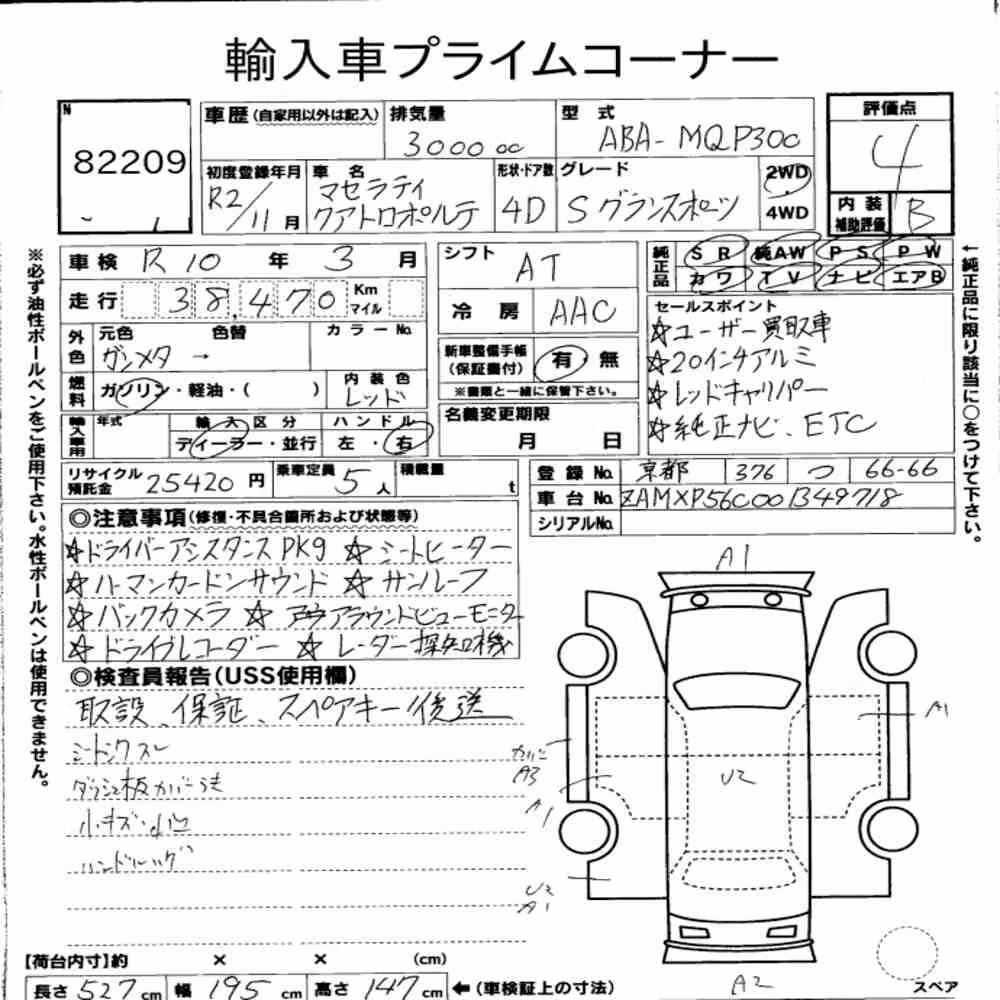 輸入車プライムコーナー
N
82209
車歴 (自家用以外は記入)
排気量
3000 cc
型式
ABA-MQP30C
評価点
4
内装補助評価
B
初度登録年月
R2/11月
車名
マセラティ
クアトロポルテ
形状・ドア数
4D
グレード
S グランスポーツ
2WD
4WD
車検 R 10 年 3 月
走行 38,470 Km マイル
外色
元色 色替 カラーNo.
ガンメタ →
燃料
ガソリン・軽油・( )
内装色
レッド
輸入車用
年式
輸入区分
ディーラー・並行
ハンドル
左・右
シフト
AT
冷房 AAC
新車整備手帳
(保証書付)
有・無
※書類と一緒に保管下さい。
名義変更期限
月 日
純正品
SR 純AW PS PW
カワ TV ナビ エアB
セールスポイント
☆ユーザー買取車
☆20インチアルミ
☆レッドキャリパー
☆純正ナビ、ETC
リサイクル預託金 25420 円
乗車定員 5 人
積載量 t
登録No. 京都 376 つ 66-66
車台No. ZAMXP56C001349718
シリアルNo.
◎注意事項(修復・不具合箇所および状態等)
☆ドライバーアシスタンスPKG ☆シートヒーター
☆ハーマンカードンサウンド ☆サンルーフ
☆バックカメラ ☆アラウンドビューモニター
☆ドライブレコーダー ☆レーダー探知機
◎検査員報告(USS使用欄)
取説、保証、スペアキー後送
シートシワスレ
ダッシュ板カバーうき
小キズ・凹
※必ず油性ボールペンをご使用下さい。水性ボールペンは使用できません。
←純正品に限り該当に○をつけて下さい。
A1
A1
カバーA3
A1
U2
U2
A1
A2
スペア
【荷台内寸】約 × × (cm)
長さ 527 cm 幅 195 cm 高さ 147 cm ←(車検証上の寸法)